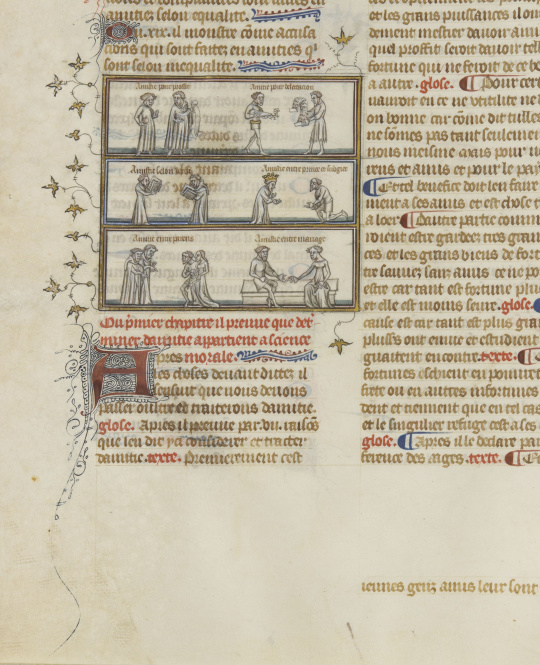 amitiez selon equalite.
Du .xix. il monstre cōme accusa
cions qui sont faites en amitiez qͥ
sont selon inequalite.
Amistie pour profit
Amistie pour delectacion
Amistie selon vertu
Amistie entre prince et subgiez
Amistie entre parens
Amistie entre mariage
Ou pmier chapitre il preuve que det̄
miner damitie appartient a science
morale.
Apres
les choses devant dictes il
sensuit que nous devons
passer oultre et traictons damitie.
glose. Apres il preuve par .vii. raisōs
que len die yci considerer et tracter
damitie. texte. Premierement cest
et les grans puissances il ont
dement mestier davoir amis
quel proffit seroit davoir telle
fortune qui ne feroit de ce be
a autre. glose. Pour cer
nauroit en ce ne utilite ne
on bonne car cōme dit tulles
ne sōmes pas tant seulement
nous meisme mais pour n
rens et amis et pour le pay
Et tel benefice doit len faire
ment a ses amis et est chose t
a loer Dautre partie comm
roient estre gardeez tres gran
ces et les grans biens de for
tre sauvez sanz amis ce ne po
estre car tant est fortune plus
et elle est moins seure. glose.
cause est car tant est plus gran
plusꝰs ont envie et estudient
guaitent encontre. texte.
fortunes eschient en povrete
frete ou en autres infortunes
dent et tiennent que en tel cas
et le singulier refuge est a ses a
glose. Apres il le declare par
ference des aages. texte.
ieunes genz amis leur sont